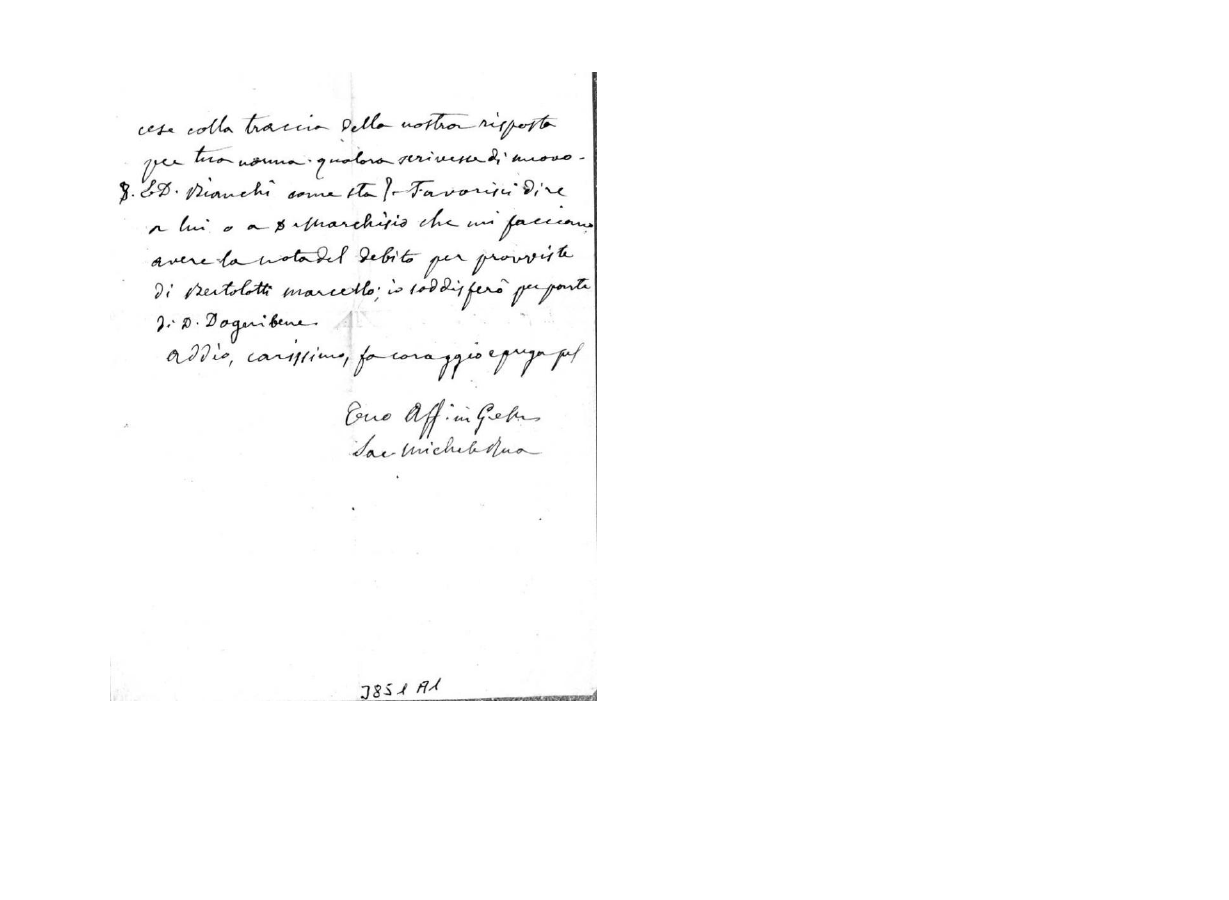 cese colla traccia della nostra risposta
per tua norma qualora scrivesse di nuovo -
8. E D. Bianchi come sta? - Favorisci dire
a lui o a D. Marchisio che mi facciano
avere la nota del debito per provviste
di Bertolotti Marcello; io soddisferò per parte
di D. Dogenibene.
Addio, carissimo, fa coraggio e prega pel
Tuo Aff. in G. e M.
Sac Michele Rua
3851 A1